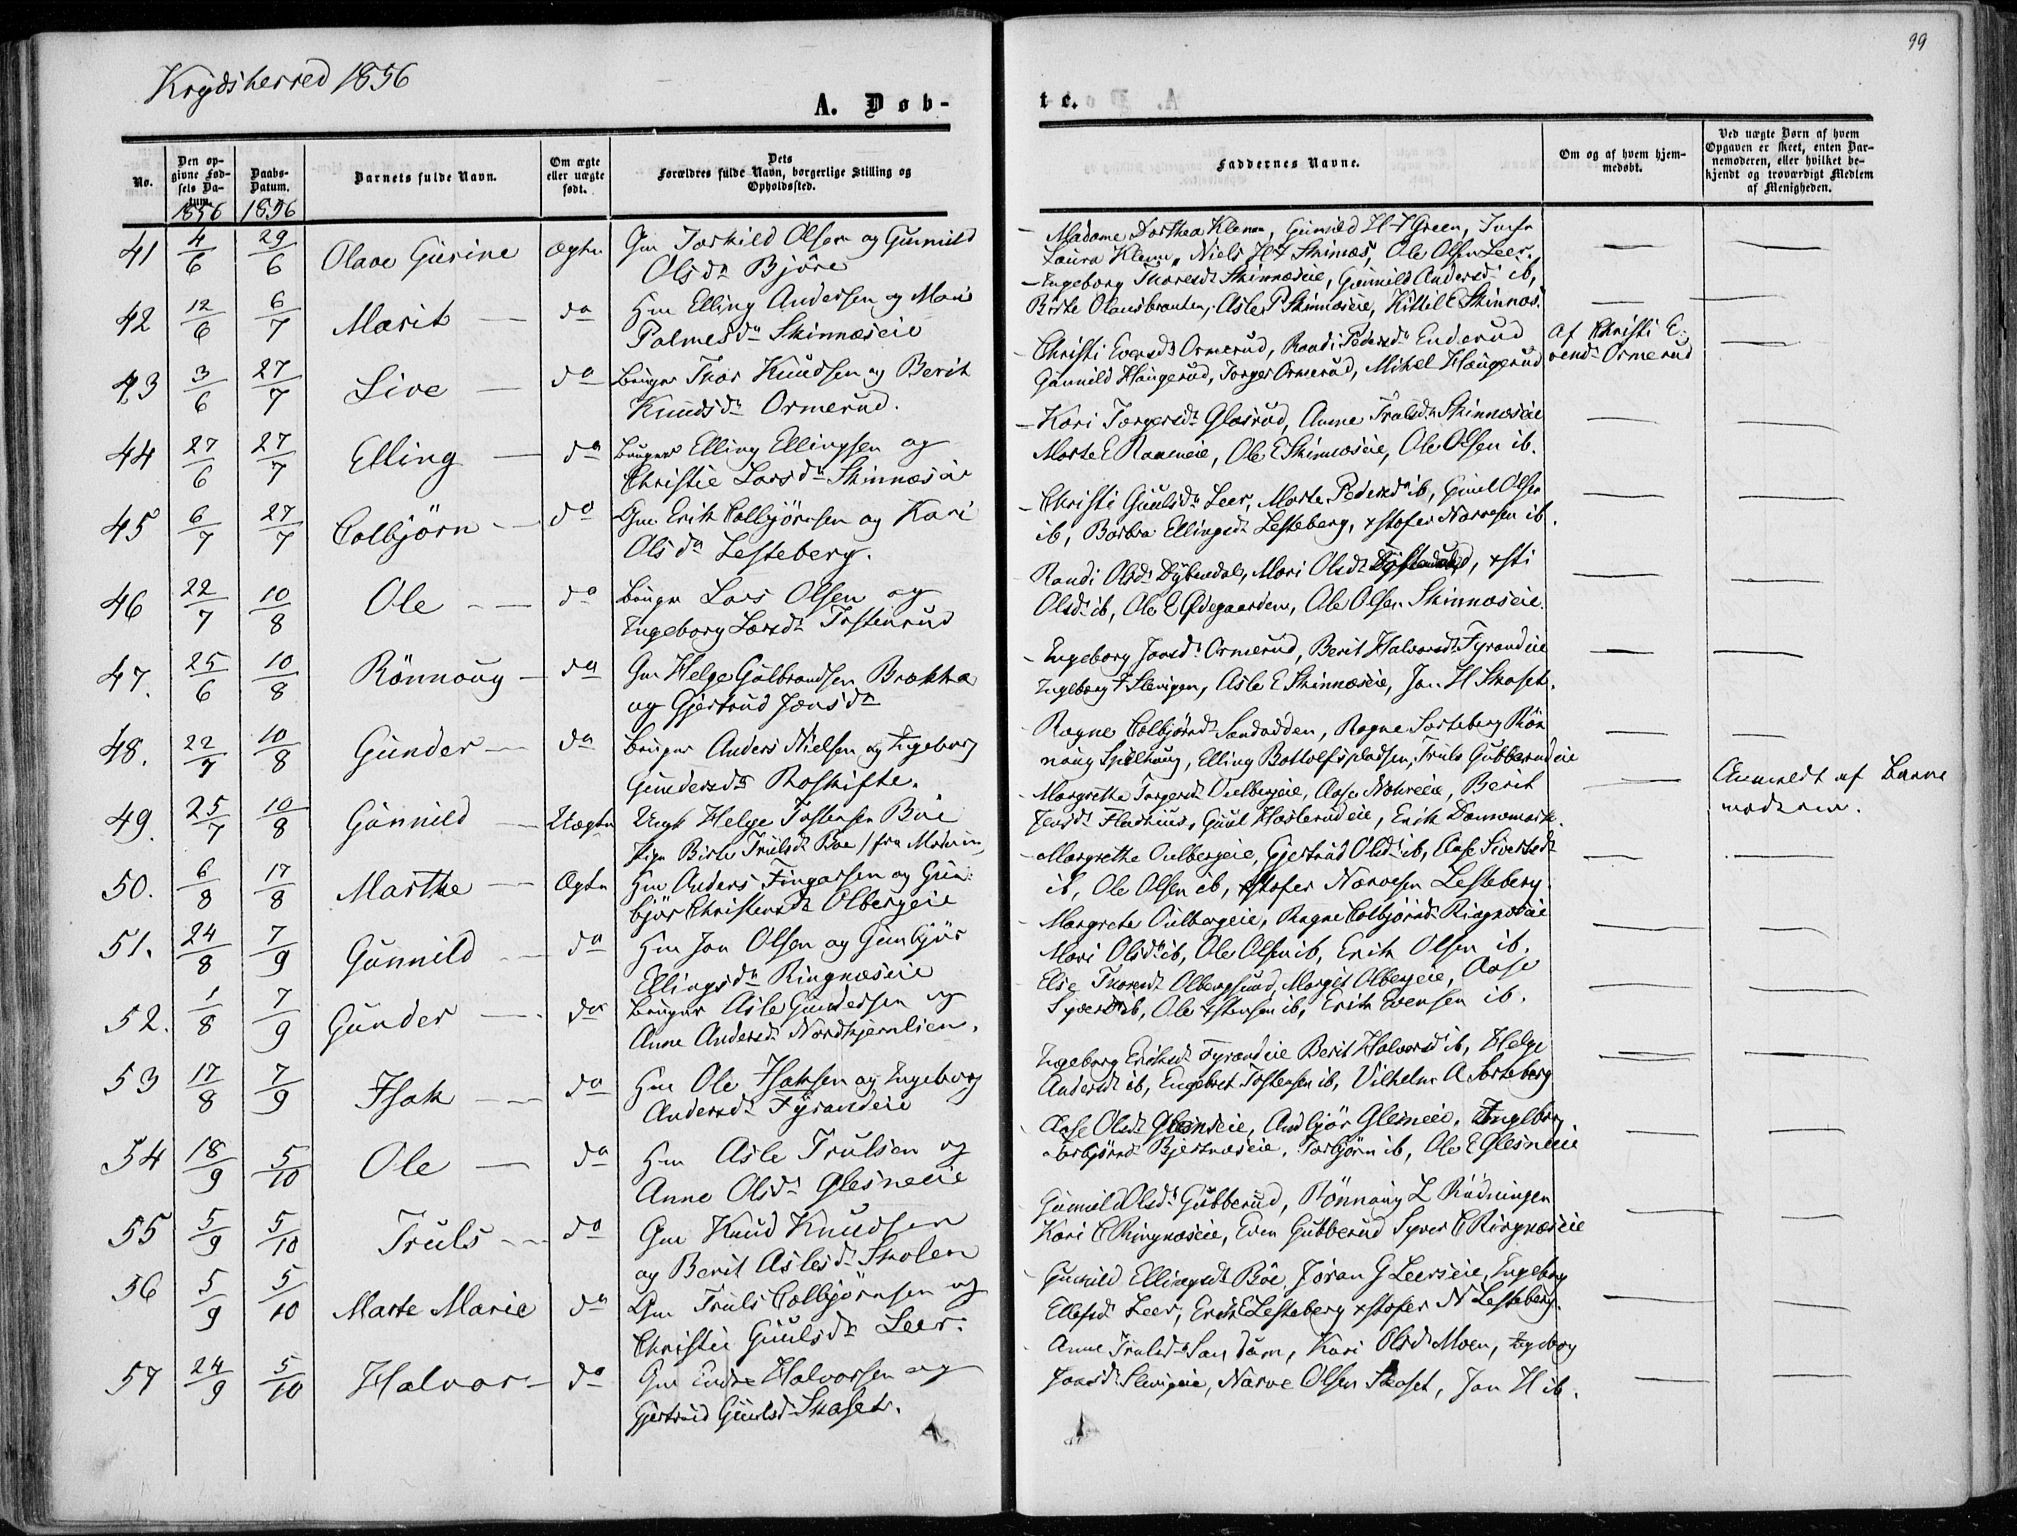 99
Krydsherred 1856
A. Døb-
te.
No.
Den op-
givne Fød-
sels Da-
tum.
1856
Daabs-
Datum.
1856
Barnets fulde Navn.
Om ægte
eller uægte
født.
Dets
Forældres fulde Navn, borgerlige Stilling og
Opholdssted.
Faddernes Navne.
Om og af hvem hjem-
medøbt.
Ved uægte Børn af hvem
Opgaven er skeet, enten Bar-
nemoderen, eller hvilket be-
kjendt og troværdigt Medlem
af Menigheden.
41 4/6 29/6 Olave Gurine Ægte Gm Torkild Olsen og Gunnild
Olsdr Björe
Madame Dorthea Klemm, Gunnild H Green,
Laura Klemm, Niels Skinnæs, Ole Olsen Leer.
42 12/6 6/7 Marit — do Hm Elling Andersen og Mari
Palmesdr Skinnæseie
Ingeborg Thoresdr Skinnæseie, Gunnild Andersdr ib,
Birte Olausbraaten, Asle P Skinnæseie, Kittil E Skinnæs.
43 3/6 27/7 Live — do Bruger Thor Knudsen og Berit
Knudsdr Ormerud.
Christi Evensdr Ormerud, Randi Pedersdr Enderud
Gunnild Haugerud, Torger Ormerud, Mikel Haugerud
af Christi E-
vensdr Ormerud
44 27/6 27/7 Elling — do Bruger Elling Ellingsen og
Christie Larsdr Skinnæseie
Kari Torgersdr Glasrud, Anne Trulsdr Skinnæseie
Marte E Raaeneie, Ole E Skinnæseie, Ole Olsen ib.
45 6/7 27/7 Colbjörn — do Gm Erik Colbjörnsen og Kari
Olsdr Lesteberg.
Christi Guulsdr Leer, Marte Pedersdr ib, Guul Olsen
ib, Barbra Ellingsdr Lesteberg, xstofer Narvesen ib.
46 22/7 10/8 Ole — do Bruger Lars Olsen og
Ingeborg Larsdr Tostenrud
Randi Olsdr Dybendal, Mari Olsdr, xsti
Olsdr ib, Ole E Ødegaarden, Ole Olsen Skinnæseie.
47. 25/6 10/8 Rönnaug — do Gm Helge Gulbrandsen Brækka
og Gjertrud Jonsdr
Ingeborg Jonsdr Ormerud, Berit Halvorsdr Fyrandeie
Ingeborg T Slevigen, Asle E Skinnæseie, Jon H Skaset.
48. 22/7 10/8 Gunder — do Bruger Anders Nielsen og Ingeborg
Gundersdr Roskifte.
Ragne Colbjörnsdr Sandodden, Ragne Sorteberg Rön
naug Spilhaug, Elling Bottolfspladsen, Truls Gubberudeie
49. 25/7 10/8 Gunnild — Uægte Ungk Helge Tostensen Böe
Pige Birte Trulsdr Böe / fra Modum
Margrethe Torgersdr Oulbergeie, Aase Nohreeie, Berit
Jensdr Flathuus, Guul Haslerudeie, Erik Dannemark.
Anmeldt af Barne
moderen.
50. 6/8 17/8 Marthe — Ægte Hm Anders Fingarsen og Gun-
björ Christensdr Olbergeie
Margrethe Oulbergeie, Gjertrud Olsdr ib, Aase Sivertsdr
ib, Ole Olsen ib, xstofer Narvesen Lesteberg.
51. 24/8 7/9 Gunnild — do Hm Jon Olsen og Gunbjör
Ellingsdr Ringnæseie
Margrete Oulbergeie, Ragne Colbjörnsdr Ringnæseie
Mari Olsdr ib, Ole Olsen ib, Erik Olsen ib.
52. 1/8 7/9 Gunder — do Bruger Asle Gundersen og
Anne Andersdr Nordkjernlien.
Else Thoresdr Olbergsund, Margit Olbergeie, Aase
Syversdr ib, Ole xstensen ib, Erik Evensen ib.
53 17/8 7/9 Isak — do Hm Ole Isaksen og Ingeborg
Andersdr Fyrandeie
Ingeborg Eriksdr Fyrandeie Berit Halvorsdr ib, Helge
Andersdr ib, Engebret Tostensen ib, Vilhelm A Sorteberg
54 18/9 5/10 Ole — do Hm Asle Trulsen og
Anne Olsdr Glesneeie
Aase Olsdr Glesneeie, Andbjör Glesneeie, Ingeborg
Torbjörnsdr Bjertnæseie, Torbjörn ib, Ole E Glesneeie
55 5/9 5/10 Truls — do Gm Knud Knudsen
og Berit Aslesdr Skolen
Gunnild Olsdr Gubberud, Rönnaug L Rudningen
Kari C Ringnæseie, Even Gubberud Syver C Ringnæseie
56 5/9 5/10 Marte Marie do Gm Truls Colbjörnsen og
Christie Guulsdr Leer.
Gunnild Ellingsdr Böe, Jöran G Leerseie, Ingeborg
Ellefsdr Leer, Erik E Lesteberg xstofer N Lesteberg.
57 24/9 5/10 Halvor — do Gm Endre Halvorsen og
Gjertrud Guulsdr Skaset.
Anne Trulsdr Sandum, Kari Olsdr Moen, Ingeborg
Jonsdr Slevigeie, Narve Olsen Skaset, Jon H ib.